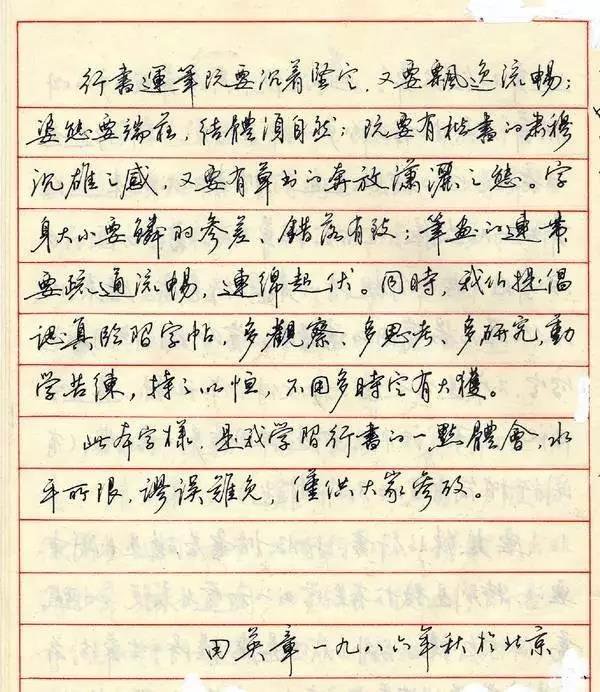 行書運筆既要沉着堅定，又要飄逸流暢；
姿態要端莊，結體須自然；既要有楷書的肅穆
沉雄之感，又要有草书的奔放瀟灑之態。字
身大小要鱗羽參差、錯落有致；筆画的連帶
要疏通流暢，連綿起伏。同時，我们提倡
認真临習字帖，多觀察、多思考、多研究，勤
学苦練，持之以恒，不用多時定有大獲。
此本字樣，是我学習行書的一點體會，水
平所限，謬误難免，僅供大家參攷。
田英章一九八六年秋於北京